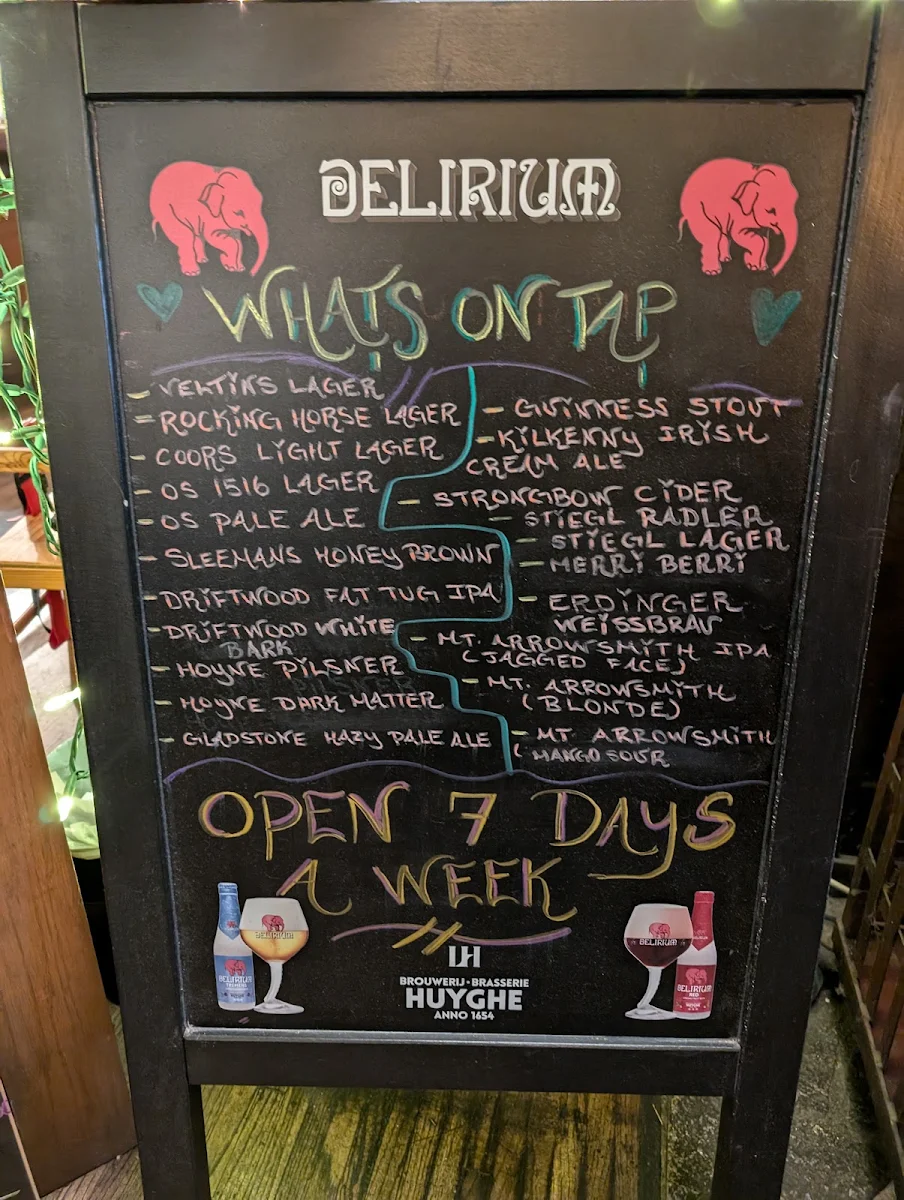 DELIRIUM
WHAT'S ON TAP
- VELTINS LAGER
- ROCKING HORSE LAGER
- COORS LIGHT LAGER
- OS 1516 LAGER
- OS PALE ALE
- SLEEMANS HONEY BROWN
- DRIFTWOOD FAT TUG IPA
- DRIFTWOOD WHITE
BARK
- HOYNE PILSNER
- HOYNE DARK MATTER
- GLADSTONE HAZY PALE ALE
- GUINNESS STOUT
- KILKENNY IRISH
CREAM ALE
- STRONGBOW CIDER
- STIEGL RADLER
- STIEGL LAGER
- MERRI BERRI
- ERDINGER
WEISSBRAU
- MT. ARROWSMITH IPA
(JAGGED FACE)
- MT. ARROWSMITH
(BLONDE)
- MT ARROWSMITH
( MANGO SOUR
OPEN 7 DAYS
A WEEK
LH
BROUWERIJ - BRASSERIE
HUYGHE
ANNO 1654
DELIRIUM
DELIRIUM
TREMENS
DELIRIUM
DELIRIUM
RED